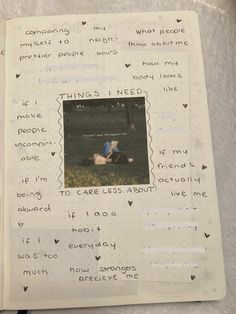 comparing my
myself to neigh-
prettier people bours
what people
think about me
how my
body looks
like
THINGS I NEED
if I
make
people
uncomfort-
able
if I'm
being
akward
if I
was too
much
TO CARE LESS ABOUT
if my
friends
actually
like me
if I do a
habit
everyday
how strangers
precieve me